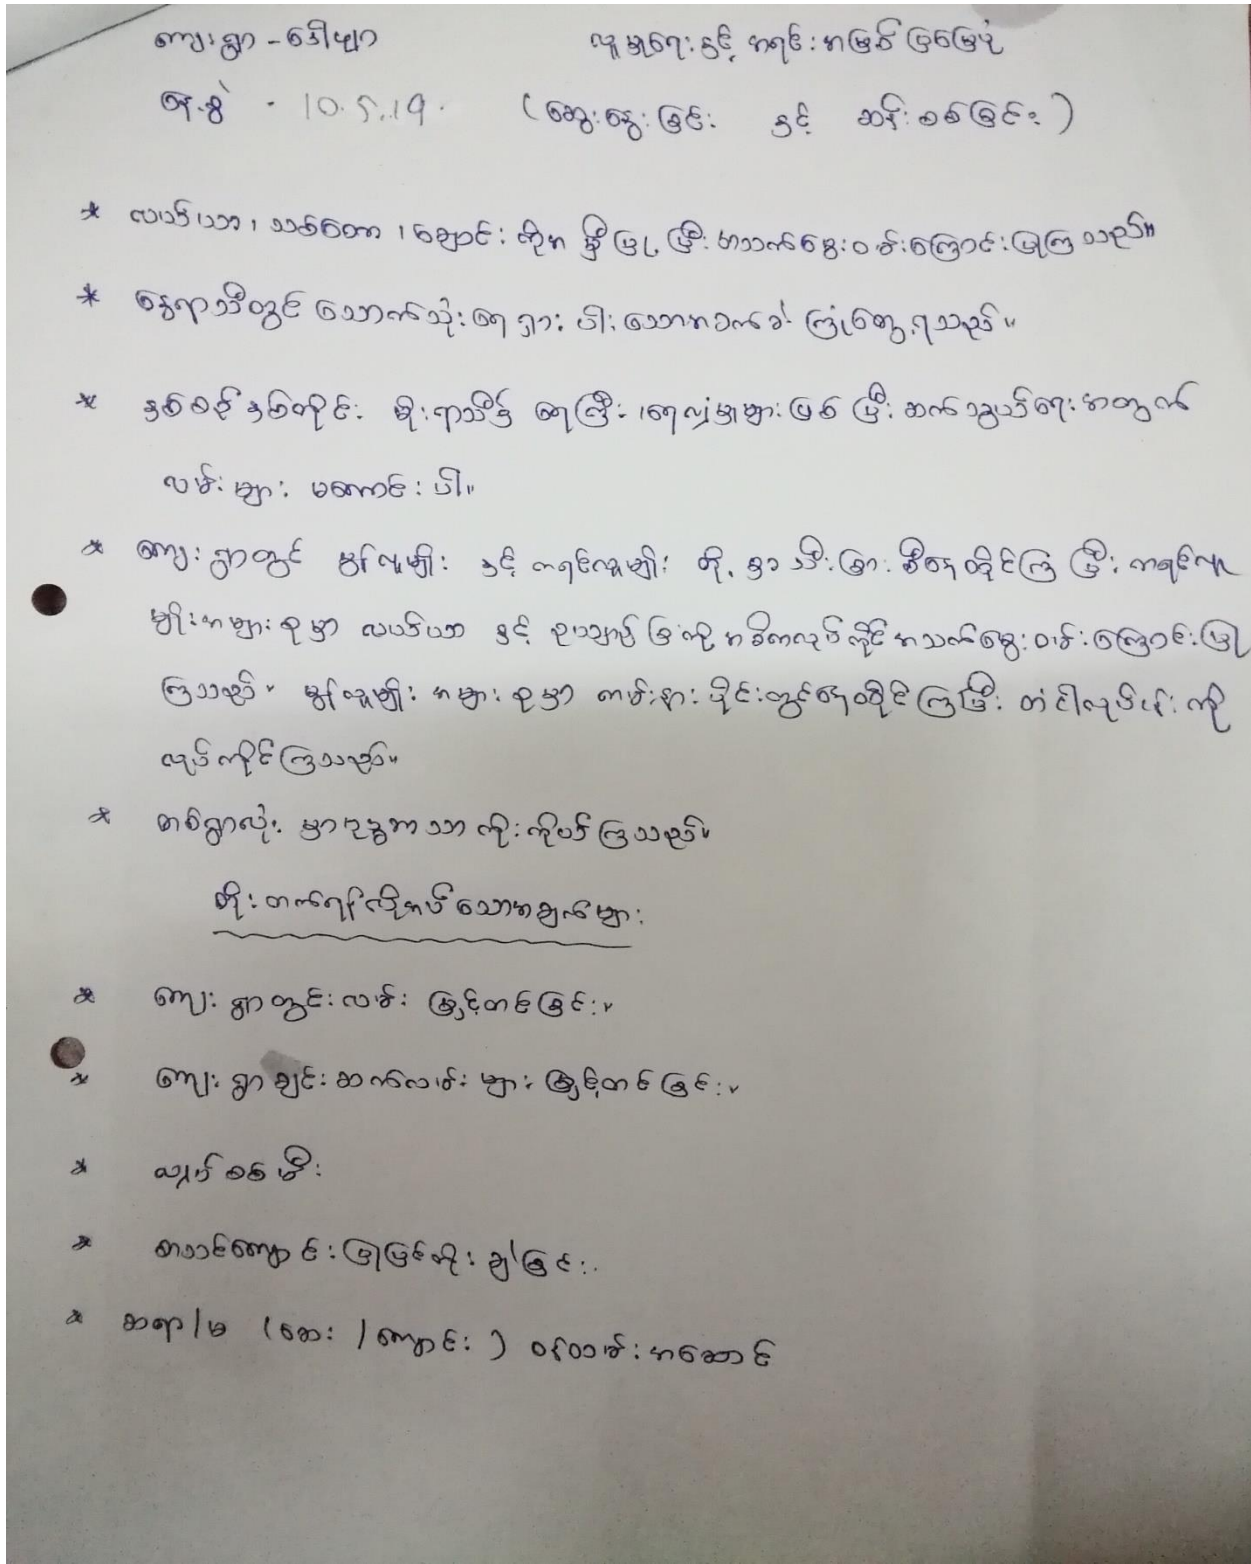 ကျေးရွာ - ဒေါဖျာ လူမှုရေးနှင့် အရင်းအမြစ်ပြမြေပုံ
နေ့စွဲ - 10.5.19. (ဆွေးနွေးခြင်း နှင့် ဆန်းစစ်ခြင်း)
* လယ်ယာ၊ သစ်တော၊ ချောင်း တို့အမှီပြု ပြီးအသက်မွေးဝမ်းကြောင်းပြုကြသည်။
* နွေရာသီတွင် သောက်သုံးရေ ရှားပါးသောအခက်ခဲ ကြုံတွေ့ရသည်။
* နှစ်စဉ်နှစ်တိုင်း မိုးရာသီ၌ ရေကြီး၊ ရေလျှံမှုများဖြစ်ပြီး ဆက်သွယ်ရေးအတွက်
လမ်းများ မကောင်းပါ။
* ကျေးရွာတွင် မွန်လူမျိုး နှင့် ကရင်လူမျိုး တို့ ရွာသီးခြားစီနေထိုင်ကြပြီး ကရင်လူ
မျိုးအများစုမှာ လယ်ယာ နှင့် ဥယျာဉ်ခြံကို အဓိကလုပ်ကိုင် အသက်မွေးဝမ်းကြောင်းပြု
ကြသည်။ မွန်လူမျိုး အများစုမှာ ကမ်းနားပိုင်းတွင်နေထိုင်ကြပြီး တံငါလုပ်ငန်းကို
လုပ်ကိုင်ကြသည်။
* တစ်ရွာလုံးမှာဗုဒ္ဓဘာသာကိုးကွယ်ကြသည်။
တိုးတက်ရန်လိုအပ်သောအချက်များ
* ကျေးရွာတွင်းလမ်း မြှင့်တင်ခြင်း။
* ကျေးရွာချင်းဆက်လမ်းများ မြှင့်တင်ခြင်း။
* လျှပ်စစ်မီး
* စာသင်ကျောင်းပြုပြင်တိုးချဲ့ခြင်း.
* ဆရာ/မ (ဆေး / ကျောင်း) ဝန်ထမ်းအဆောင်